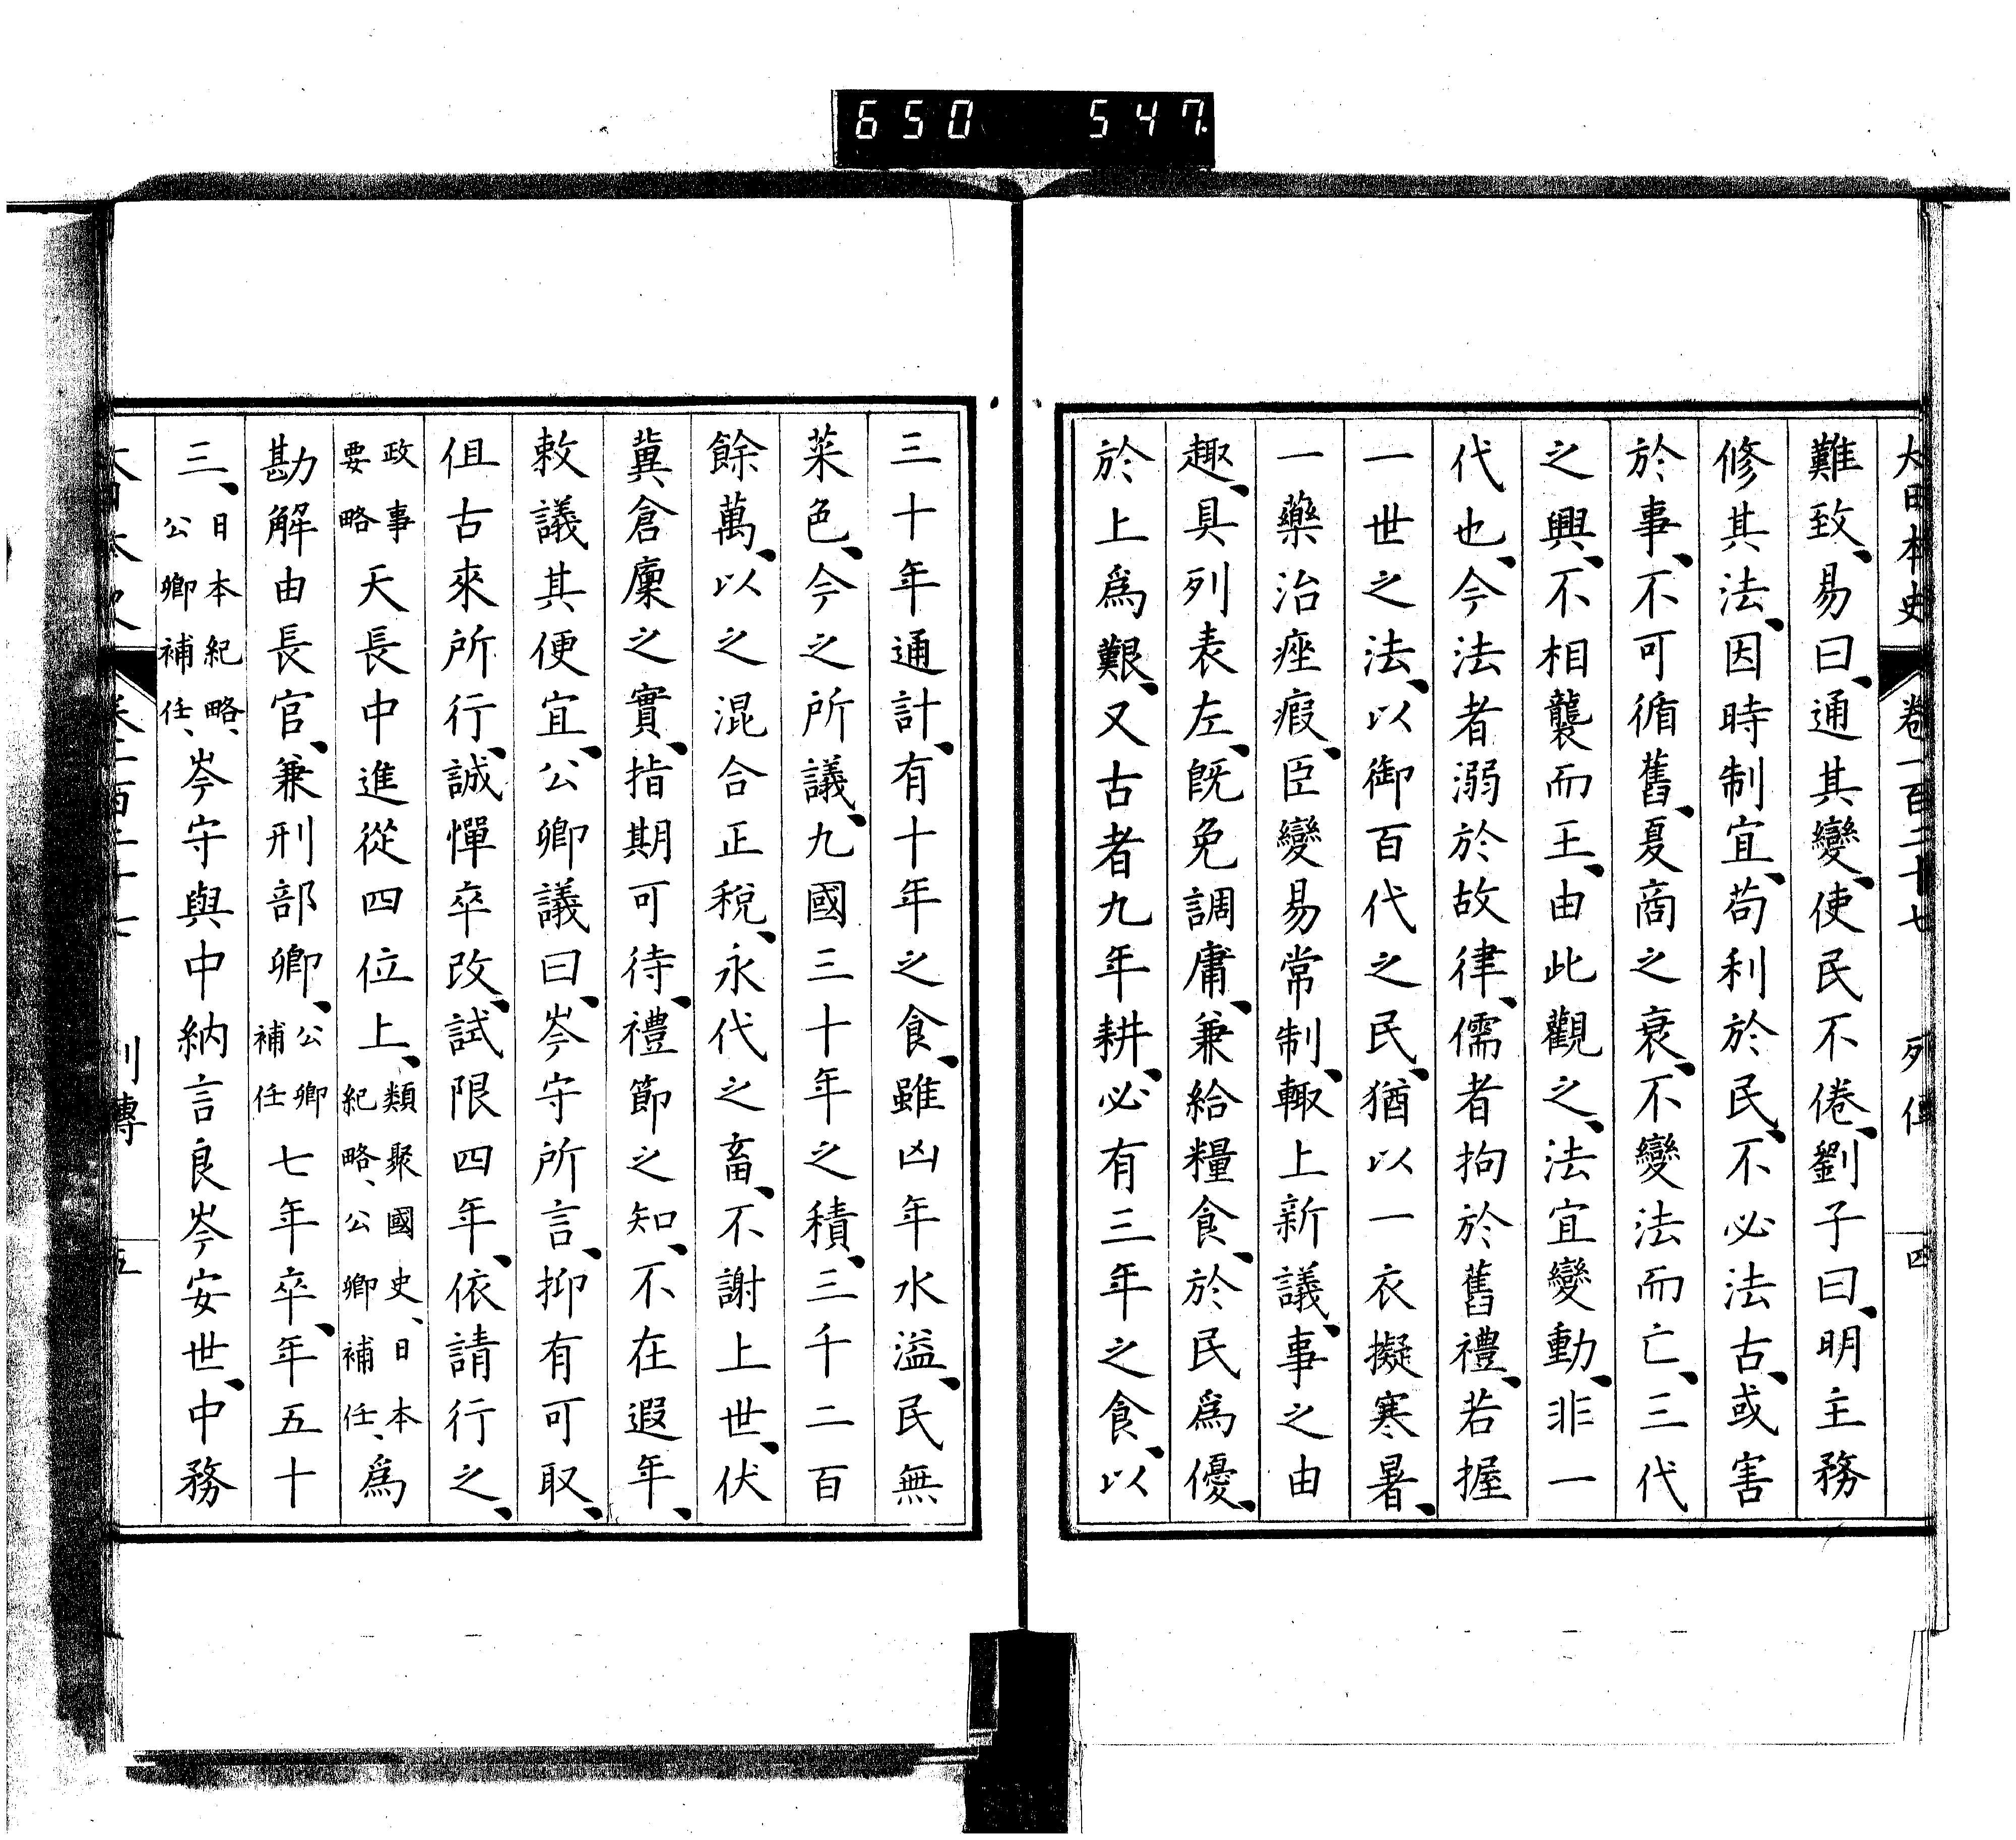 650 547.
大日本史 卷一百二十七 列傳 四
難致、易曰、通其變、使民不倦、劉子曰、明主務
修其法、因時制宜、苟利於民、不必法古、或害
於事、不可循舊、夏商之衰、不變法而亡、三代
之興、不相襲而王、由此觀之、法宜變動、非一
代也、今法者溺於故律、儒者拘於舊禮、若握
一世之法、以御百代之民、猶以一衣擬寒暑、
一藥治痤瘕、臣變易常制、輙上新議、事之由
趣、具列表左、旣免調庸、兼給糧食、於民爲優、
於上爲艱、又古者九年耕、必有三年之食、以
三十年通計、有十年之食、雖凶年水溢、民無
菜色、今之所議、九國三十年之積、三千二百
餘萬、以之混合正稅、永代之畜、不謝上世、伏
冀倉廩之實、指期可待、禮節之知、不在遐年、
敕議其便宜、公卿議曰、岑守所言、抑有可取、
但古來所行、誠憚卒改、試限四年、依請行之、
政事要略天長中進從四位上、類聚國史、日本紀略、公卿補任、爲
勘解由長官、兼刑部卿、公卿補任七年卒、年五十
三、日本紀略、公卿補任、岑守與中納言良岑安世、中務
大日本史 卷一百二十七 列傳 五